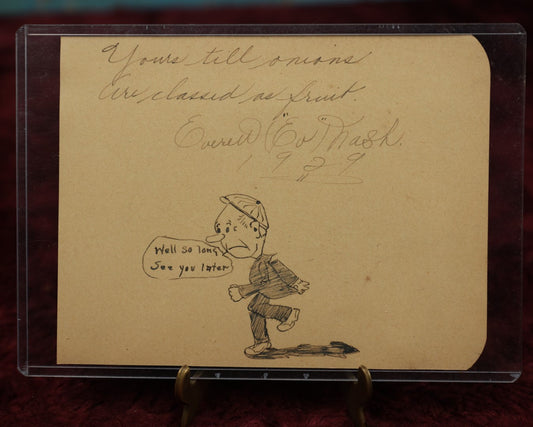 Yours till onions
Are classed as fruit.
Everett "Ev" Nash.
1929
Well so long
See you later